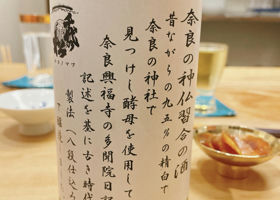 奈良の神仏習合の酒
昔ながらの九五％の精白で
奈良の神社で
見つけし酵母を使用して
奈良興福寺の多聞院日記
記述を基に古き時代
製法（八段仕込み